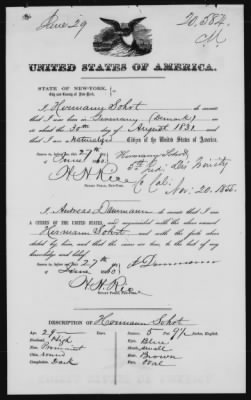 June 29
20,584
M
UNITED STATES OF AMERICA.
STATE OF NEW-YORK,
City and County of New-York,
I, Hermann Schot do swear
that I was born in Germany (Denmark) on
or about the 30th day of August 1831
that I am Naturalized Citizen of the United States of America.
Sworn to before me this 27th
June
Hermann Schot
H.H. Rice
Notary Public, New-York.
Co. Cal.
Nov. 20. 1855.
I, Andreas Dammann do swear that I am
A CITIZEN OF THE UNITED STATES, and acquainted with the above named
Hermann Schot and with the facts above
stated by him, and that the same are true, to the best of my
knowledge and belief.
Sworn to before me this 27th
June
A. Dammann
H.H. Rice
Notary Public, New-York.
DESCRIPTION OF Hermann Schot
Age, 29 Stature, 5 Feet 9 1/2 Inches, English.
Forehead, High Eyes, Blue
Nose, Prominent Mouth, Small
Chin, round Hair, Brown
Complexion, Dark Face, Oval